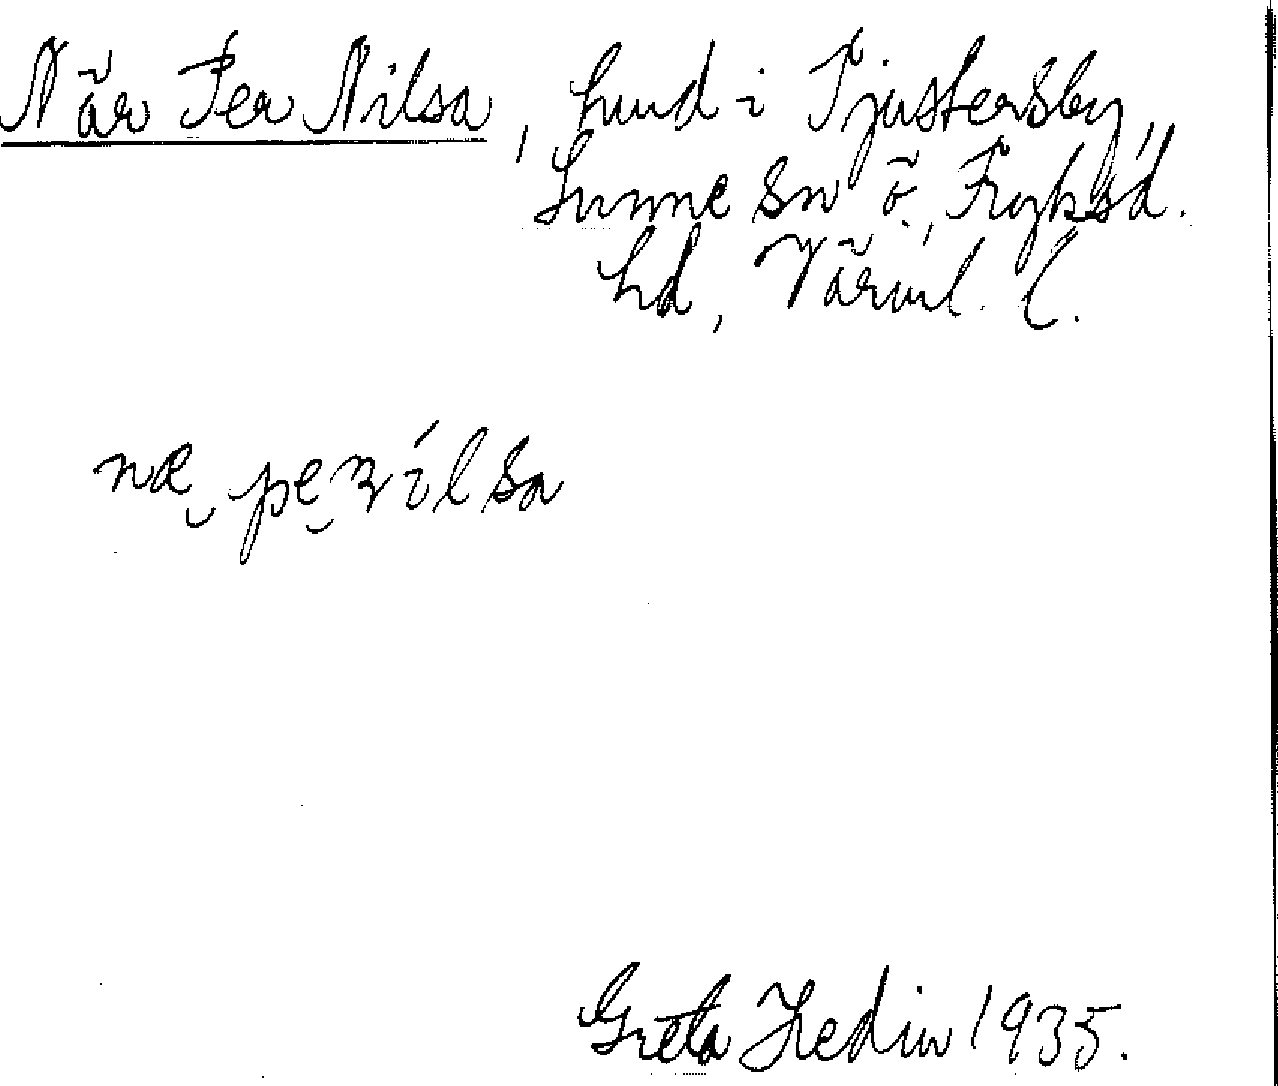 När Per Nilsa, hund i Tjustersby,
Sunne sn Ö. Fryksd.
hd, Värml. l.
næ pe nílsa
Greta Hedin 1935.